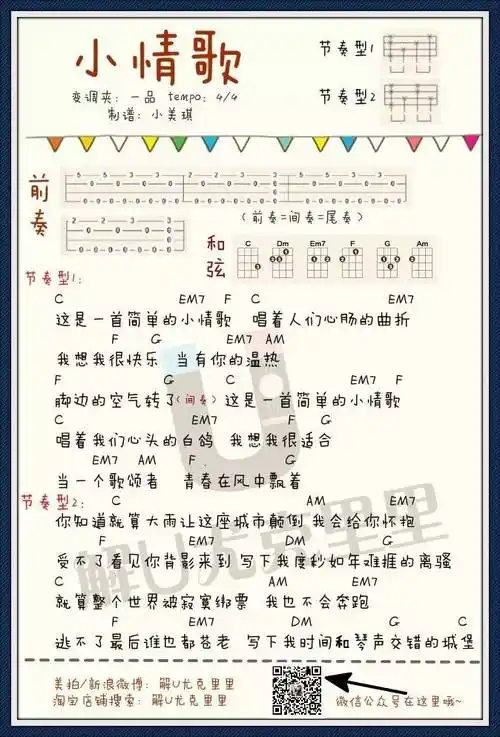 小情歌
变调夹：一品 tempo：4/4
制谱：小美琪
节奏型1
节奏型2
前奏
5 5 3 3 2 2 3 5 5 3 3
0 0 0 0 0 0 0 0 0 0 0 0
2 2 3
0 0 0 0
（前奏=间奏=尾奏）
和弦
C Dm Em7 F G Am
节奏型1：
C EM7 F C EM7
这是一首简单的小情歌 唱着人们心肠的曲折
F G EM7 AM
我想我很快乐 当有你的温热
F G C EM7 F
脚边的空气转了(间奏)这是一首简单的小情歌
C EM7 F G
唱着我们心头的白鸽 我想我很适合
EM7 AM F G
当一个歌颂者 青春在风中飘着
节奏型2：
C AM EM7
你知道就算大雨让这座城市颠倒 我会给你怀抱
F EM7 DM G
受不了看见你背影来到 写下我度秒如年难捱的离骚
C AM EM7
就算整个世界被寂寞绑票 我也不会奔跑
F EM7 DM G C
逃不了最后谁也都苍老 写下我时间和琴声交错的城堡
解U尤克里里
美拍/新浪微博：解U尤克里里
淘宝店铺搜索：解U尤克里里
微信公众号在这里哦~